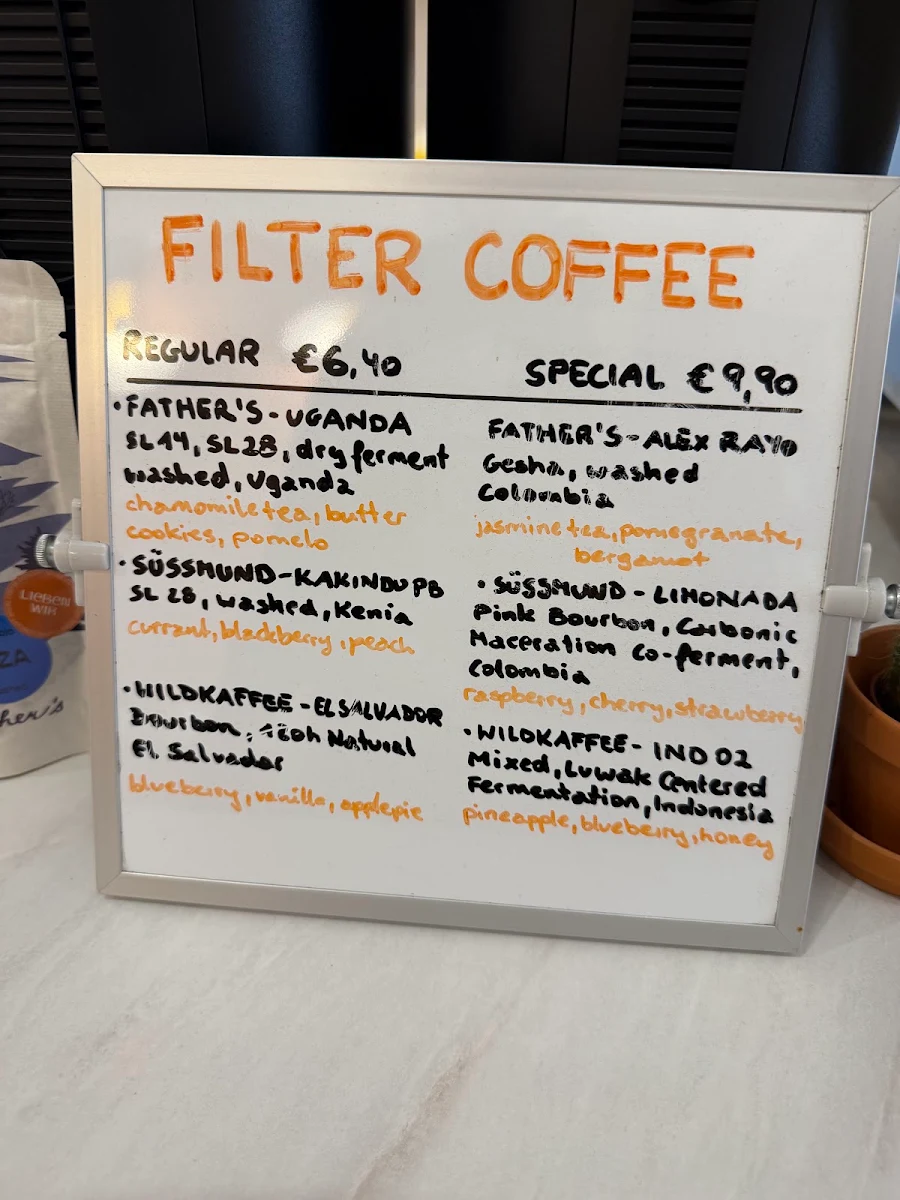 FILTER COFFEE
REGULAR €6,40
·FATHER'S-UGANDA
SL14, SL28, dry ferment
washed, Uganda
chamomile tea, butter
cookies, pomelo
·SÜSSMUND-KAKINDU PB
SL 28, washed, Kenia
currant, blackberry, peach
·WILDKAFFEE-EL SALVADOR
Bourbon, Natural
El Salvador
blueberry, vanilla, applepie
SPECIAL €9,90
FATHER'S-ALEX RAYO
Gesha, washed
Colombia
jasmine tea, pomegranate,
bergamot
·SÜSSMUND-LIMONADA
Pink Bourbon, Carbonic
Maceration Co-ferment,
Colombia
raspberry, cherry, strawberry
·WILDKAFFEE-IND 02
Mixed, Luwak Centered
Fermentation, Indonesia
pineapple, blueberry, honey
LIEBEN
WIR
ZA
her's